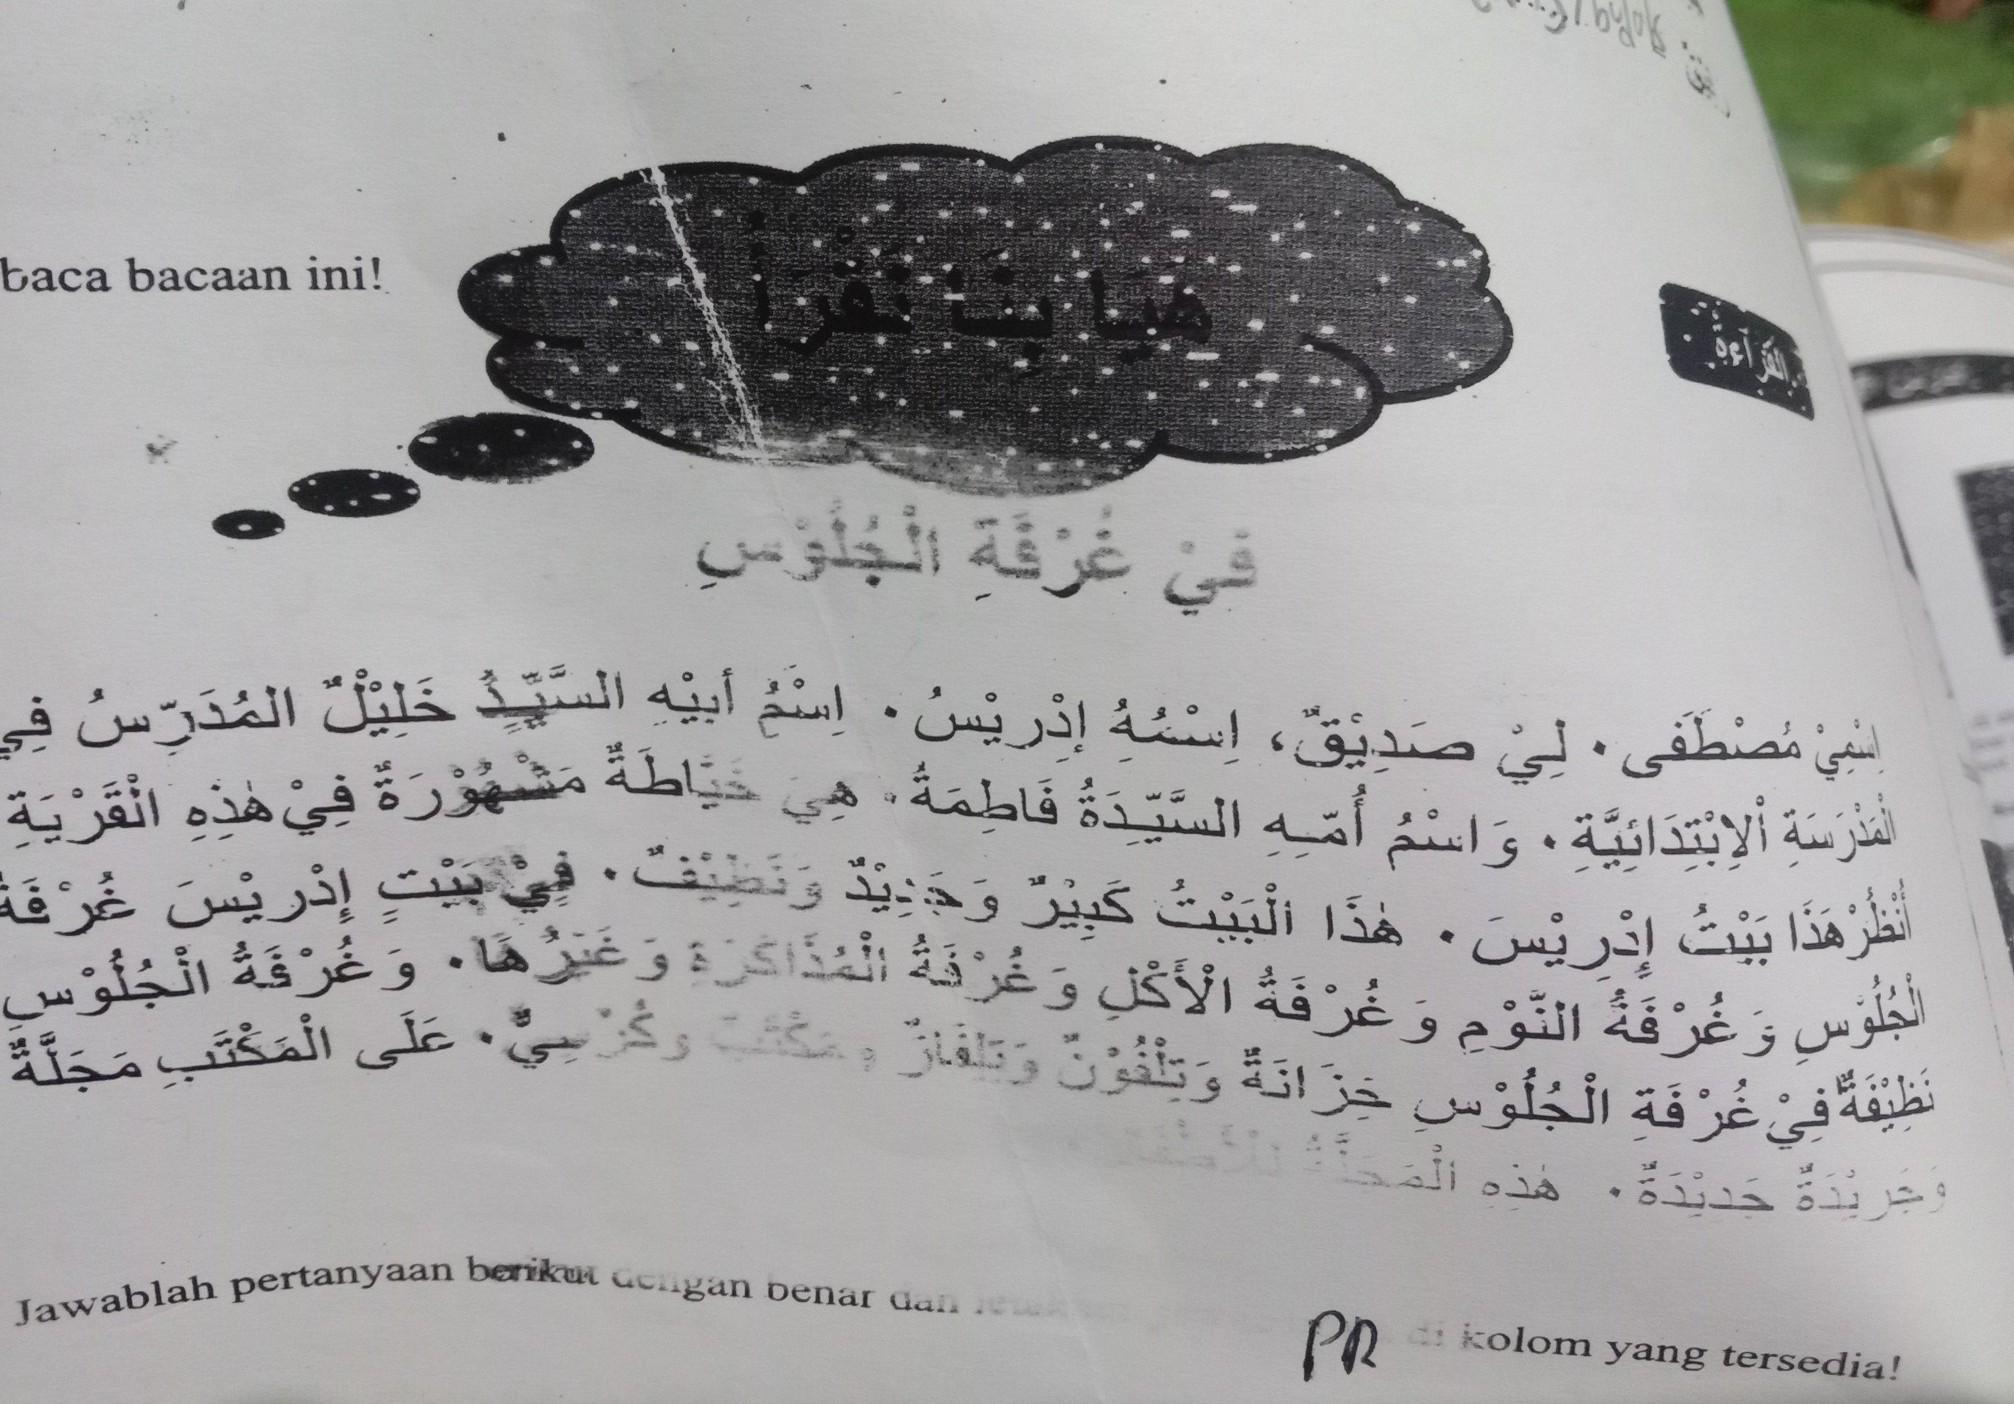 baca bacaan ini!
هَيَّا بِنَا نَقْرَأْ
القِرَاءَةُ
فِيْ غُرْفَةِ الْجُلُوْسِ
اِسْمِيْ مُصْطَفَى . لِيْ صَدِيْقٌ، اِسْمُهُ إِدْرِيْسُ . اِسْمُ أَبِيْهِ السَّيِّدُ خَلِيْلٌ المُدَرِّسُ فِي
الْمَدْرَسَةِ اْلاِبْتِدَائِيَّةِ . وَاسْمُ أُمِّهِ السَّيِّدَةُ فَاطِمَةُ . هِيَ خَيَّاطَةٌ مَشْهُوْرَةٌ فِيْ هٰذِهِ الْقَرْيَةِ
أُنْظُرْ هَذَا بَيْتُ إِدْرِيْسَ . هٰذَا الْبَيْتُ كَبِيْرٌ وَجَدِيْدٌ وَنَظِيْفٌ . فِيْ بَيْتِ إِدْرِيْسَ غُرْفَةُ
الْجُلُوْسِ وَغُرْفَةُ النَّوْمِ وَغُرْفَةُ الْأَكْلِ وَغُرْفَةُ الْمُذَاكَرَةِ وَغَيْرُهَا . وَغُرْفَةُ الْجُلُوْسِ
نَظِيْفَةٌ فِيْ غُرْفَةِ الْجُلُوْسِ خِزَانَةٌ وَتِلْفُوْنٌ وَتِلْفَازٌ وَمَكْتَبٌ وَكُرْسِيٌّ . عَلَى الْمَكْتَبِ مَجَلَّةٌ
وَجَرِيْدَةٌ جَدِيْدَةٌ . هٰذِهِ الْمَجَلَّةُ لِلْأَطْفَالِ
Jawablah pertanyaan berikut dengan benar dan di kolom yang tersedia!
PR